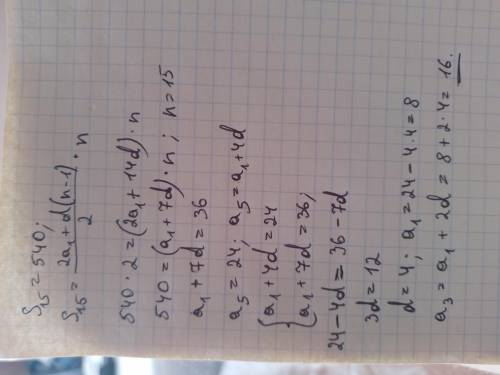 S₁₅ = 540;
S₁₅ = (2a₁ + d(n-1))/2 · n
540 · 2 = (2a₁ + 14d) · n
540 = (a₁ + 7d) · n ; n = 15
a₁ + 7d = 36
a₅ = 24; a₅ = a₁ + 4d
{a₁ + 4d = 24
{a₁ + 7d = 36;
24 - 4d = 36 - 7d
3d = 12
d = 4; a₁ = 24 - 4·4 = 8
a₃ = a₁ + 2d = 8 + 2·4 = 16.